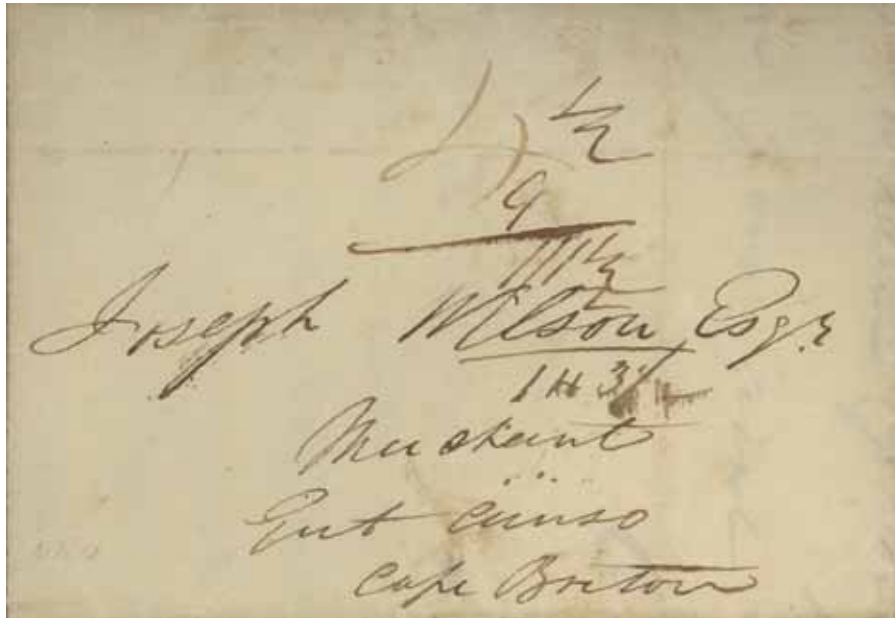 4½
9
1/1½
Joseph Wilson Esqr
Merchant
Gut Canso
Cape Breton